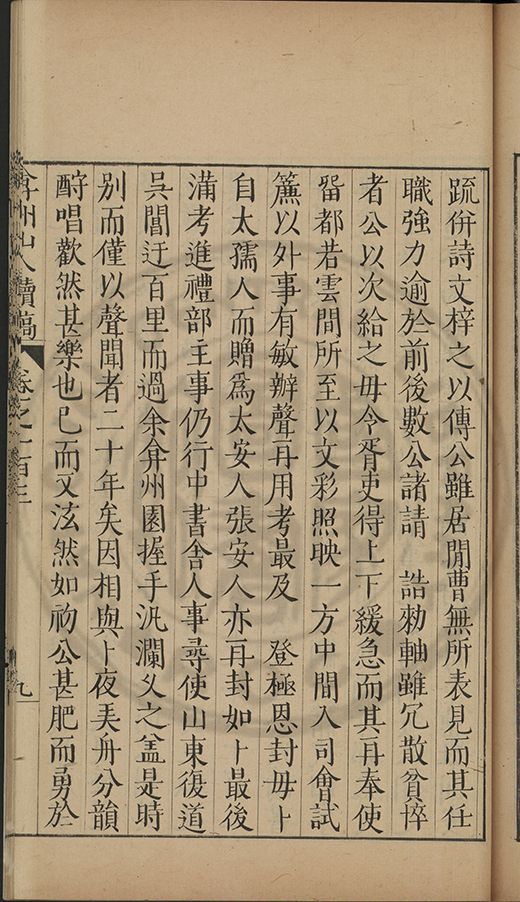 疏併詩文梓之以傳公雖居閒曹無所表見而其任
職強力逾於前後數公諸請　誥勑軸雖冗散貧悴
者公以次給之毋令胥吏得上下緩急而其再奉使
畱都若雲間所至以文彩照映一方中間入司會試
簾以外事有敏辦聲再用考最及　登極恩封毋卜
自太孺人而贈爲太安人張安人亦再封如卜最後
滿考進禮部主事仍行中書舍人事尋使山東復道
吳閶迂百里而過余弇州園握手汎瀾乆之盖是時
別而僅以聲聞者二十年矣因相與卜夜美舟分韻
酧唱歡然甚樂也已而又泫然如礿公甚肥而勇於
弇州山人續稿　卷之一百三　九